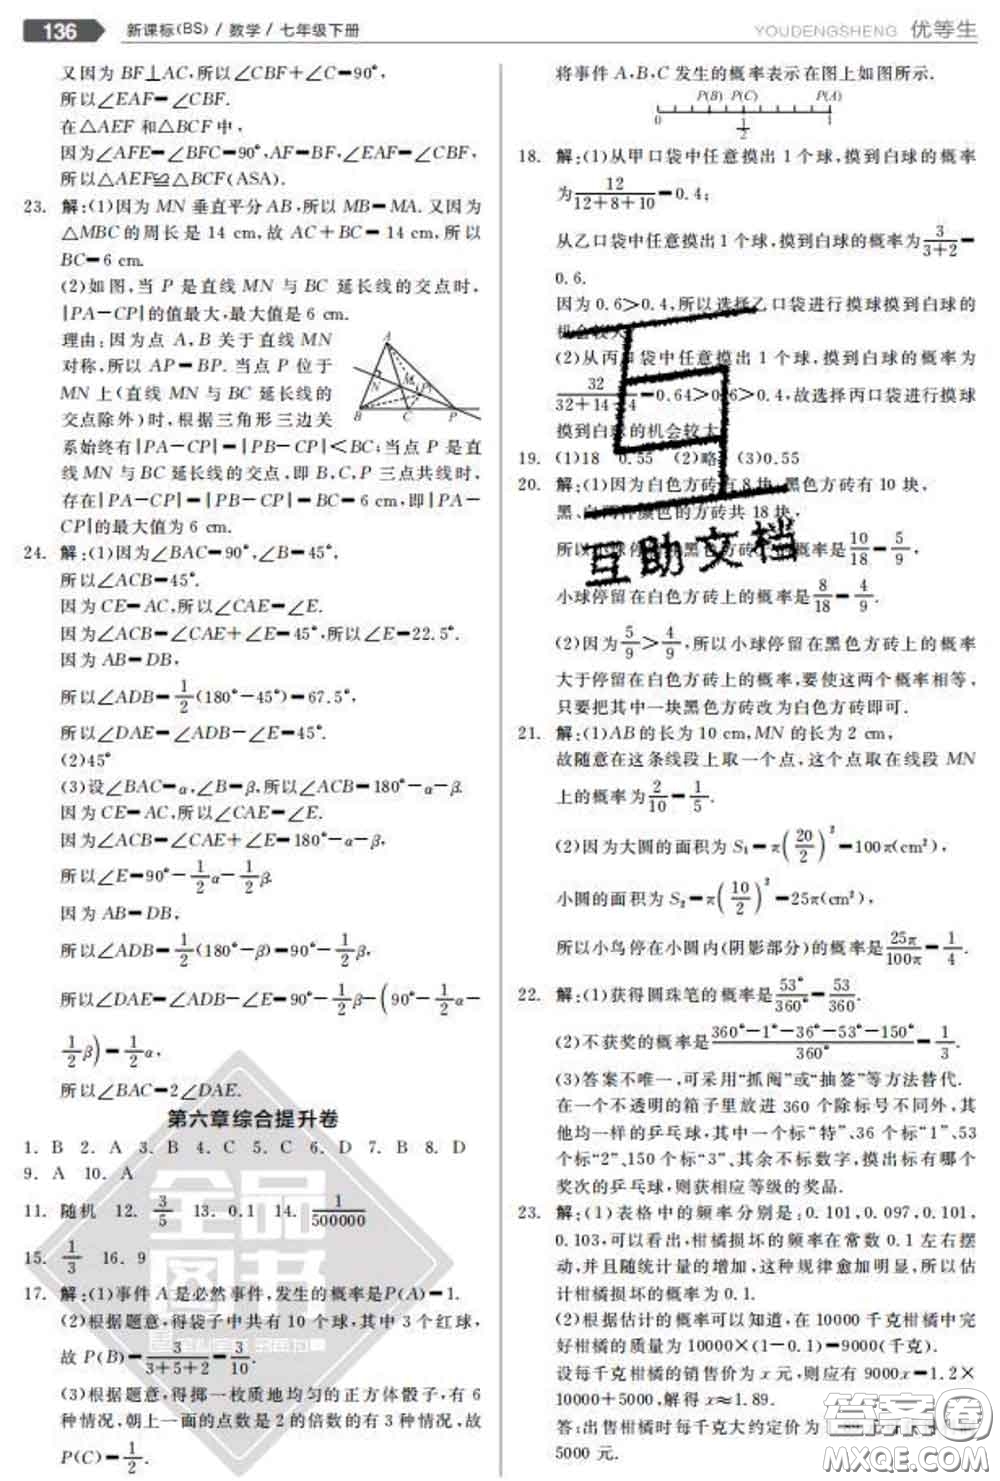 136 新课标(BS) / 数学 / 七年级下册
YOUDENGSHENG 优等生
又因为 BF⊥AC,所以∠CBF+∠C=90°,
所以∠EAF=∠CBF.
在△AEF 和△BCF 中,
因为∠AFE=∠BFC=90°,AF=BF,∠EAF=∠CBF,
所以△AEF≌△BCF(ASA).
23. 解:(1)因为 MN 垂直平分 AB,所以 MB=MA. 又因为
△MBC 的周长是 14 cm,故 AC+BC=14 cm,所以
BC=6 cm.
(2)如图,当 P 是直线 MN 与 BC 延长线的交点时,
|PA-CP|的值最大,最大值是 6 cm.
理由:因为点 A,B 关于直线 MN
对称,所以 AP=BP. 当点 P 位于
MN 上(直线 MN 与 BC 延长线的
交点除外)时,根据三角形三边关
系始终有|PA-CP|=|PB-CP|<BC;当点 P 是直
线 MN 与 BC 延长线的交点,即 B,C,P 三点共线时,
存在|PA-CP|=|PB-CP|=BC=6 cm,即|PA-
CP|的最大值为 6 cm.
24. 解:(1)因为∠BAC=90°,∠B=45°,
所以∠ACB=45°.
因为 CE=AC,所以∠CAE=∠E.
因为∠ACB=∠CAE+∠E=45°,所以∠E=22.5°.
因为 AB=DB,
所以∠ADB=1/2(180°-45°)=67.5°,
所以∠DAE=∠ADB-∠E=45°.
(2)45°
(3)设∠BAC=α,∠B=β,所以∠ACB=180°-α-β.
因为 CE=AC,所以∠CAE=∠E.
因为∠ACB=∠CAE+∠E=180°-α-β,
所以∠E=90°-1/2α-1/2β.
因为 AB=DB,
所以∠ADB=1/2(180°-β)=90°-1/2β,
所以∠DAE=∠ADB-∠E=90°-1/2β-(90°-1/2α-
1/2β)=1/2α,
所以∠BAC=2∠DAE.
第六章综合提升卷
1. B 2. A 3. B 4. C 5. C 6. D 7. B 8. D
9. A 10. A
11. 随机 12. 3/5 13. 0.1 14. 1/500000
15. 1/3 16. 9
17. 解:(1)事件 A 是必然事件,发生的概率是P(A)=1.
(2)根据题意,得袋子中共有 10 个球,其中 3 个红球,
故 P(B)=3/(3+5+2)=3/10.
(3)根据题意,得掷一枚质地均匀的正方体骰子,有 6
种情况,朝上一面的点数是 2 的倍数的有 3 种情况,故
P(C)=1/2.
将事件 A,B,C 发生的概率表示在图上如图所示.
P(B) P(C) P(A)
0 1/2 1
18. 解:(1)从甲口袋中任意摸出 1 个球,摸到白球的概率
为12/(12+8+10)=0.4;
从乙口袋中任意摸出 1 个球,摸到白球的概率为3/(3+2)=
0.6.
因为 0.6>0.4,所以选择乙口袋进行摸球摸到白球的
机会较大.
(2)从丙口袋中任意摸出 1 个球,摸到白球的概率为
32/(32+14+4)=0.64>0.6>0.4,故选择丙口袋进行摸球
摸到白球的机会较大.
19. (1)18 0.55 (2)略 (3)0.55
20. 解:(1)因为白色方砖有 8 块,黑色方砖有 10 块,
黑、白两种颜色的方砖共 18 块,
所以小球停留在黑色方砖上的概率是10/18=5/9,
小球停留在白色方砖上的概率是8/18=4/9.
(2)因为5/9>4/9,所以小球停留在黑色方砖上的概率
大于停留在白色方砖上的概率,要使这两个概率相等,
只要把其中一块黑色方砖改为白色方砖即可.
21. 解:(1)AB 的长为 10 cm,MN 的长为 2 cm,
故随意在这条线段上取一个点,这个点取在线段 MN
上的概率为2/10=1/5.
(2)因为大圆的面积为 S₁=π(20/2)²=100π(cm²),
小圆的面积为 S₂=π(10/2)²=25π(cm²),
所以小鸟停在小圆内(阴影部分)的概率是25π/100π=1/4.
22. 解:(1)获得圆珠笔的概率是53°/360°=53/360.
(2)不获奖的概率是(360°-1°-36°-53°-150°)/360°=1/3.
(3)答案不唯一,可采用“抓阄”或“抽签”等方法替代.
在一个不透明的箱子里放进 360 个除标号不同外,其
他均一样的乒乓球,其中一个标“特”、36 个标“1”、53
个标“2”、150 个标“3”、其余不标数字,摸出标有哪个
奖次的乒乓球,则获相应等级的奖品.
23. 解:(1)表格中的频率分别是:0.101,0.097,0.101,
0.103,可以看出:柑橘损坏的频率在常数 0.1 左右摆
动,并且随统计量的增加,这种规律愈加明显,所以估
计柑橘损坏的概率为 0.1.
(2)根据估计的概率可以知道,在 10000 千克柑橘中完
好柑橘的质量为 10000×(1-0.1)=9000(千克).
设每千克柑橘的销售价为 x 元,则应有 9000x=1.2×
10000+5000,解得 x≈1.89.
答:出售柑橘时每千克大约定价为 1.89 元可获利润
5000 元.
互助文档
全品
图书
答案圈
MXQE.COM